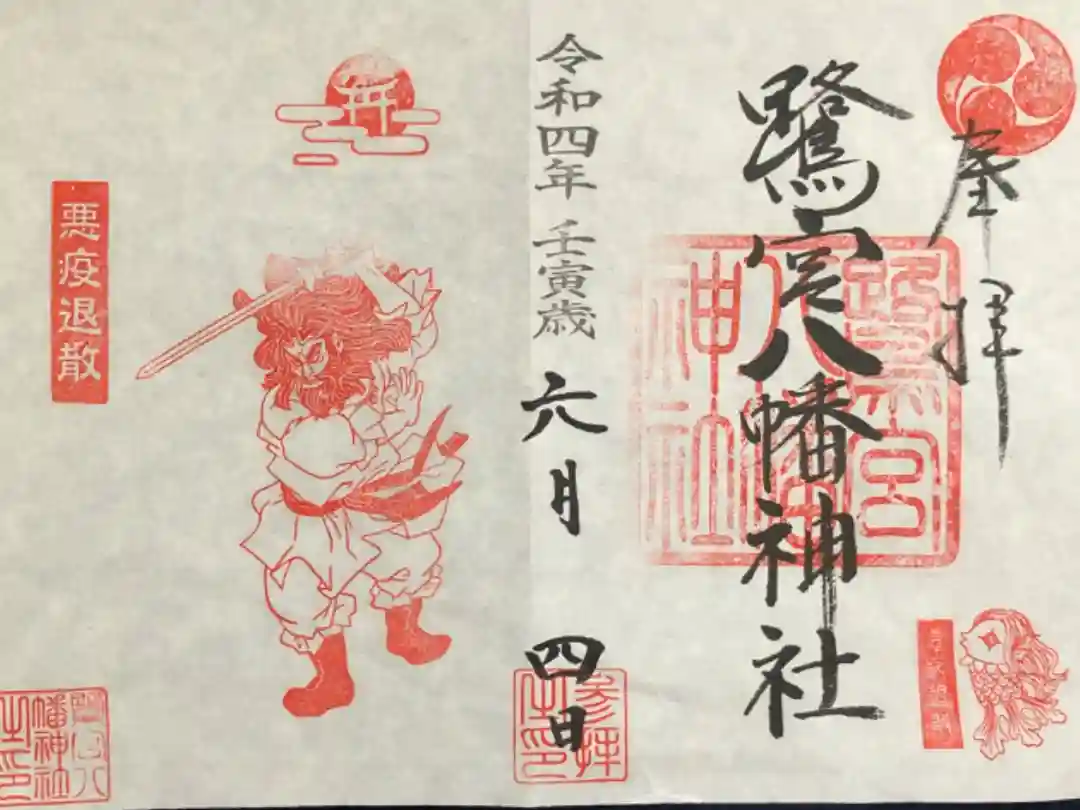 奉拝
鷺宮八幡神社
鷺宮
八幡
神社
悪疫退散
令和四年 壬寅歳 六月 四日
参拝
之印
悪疫退散
鷺宮八
幡神社
之印